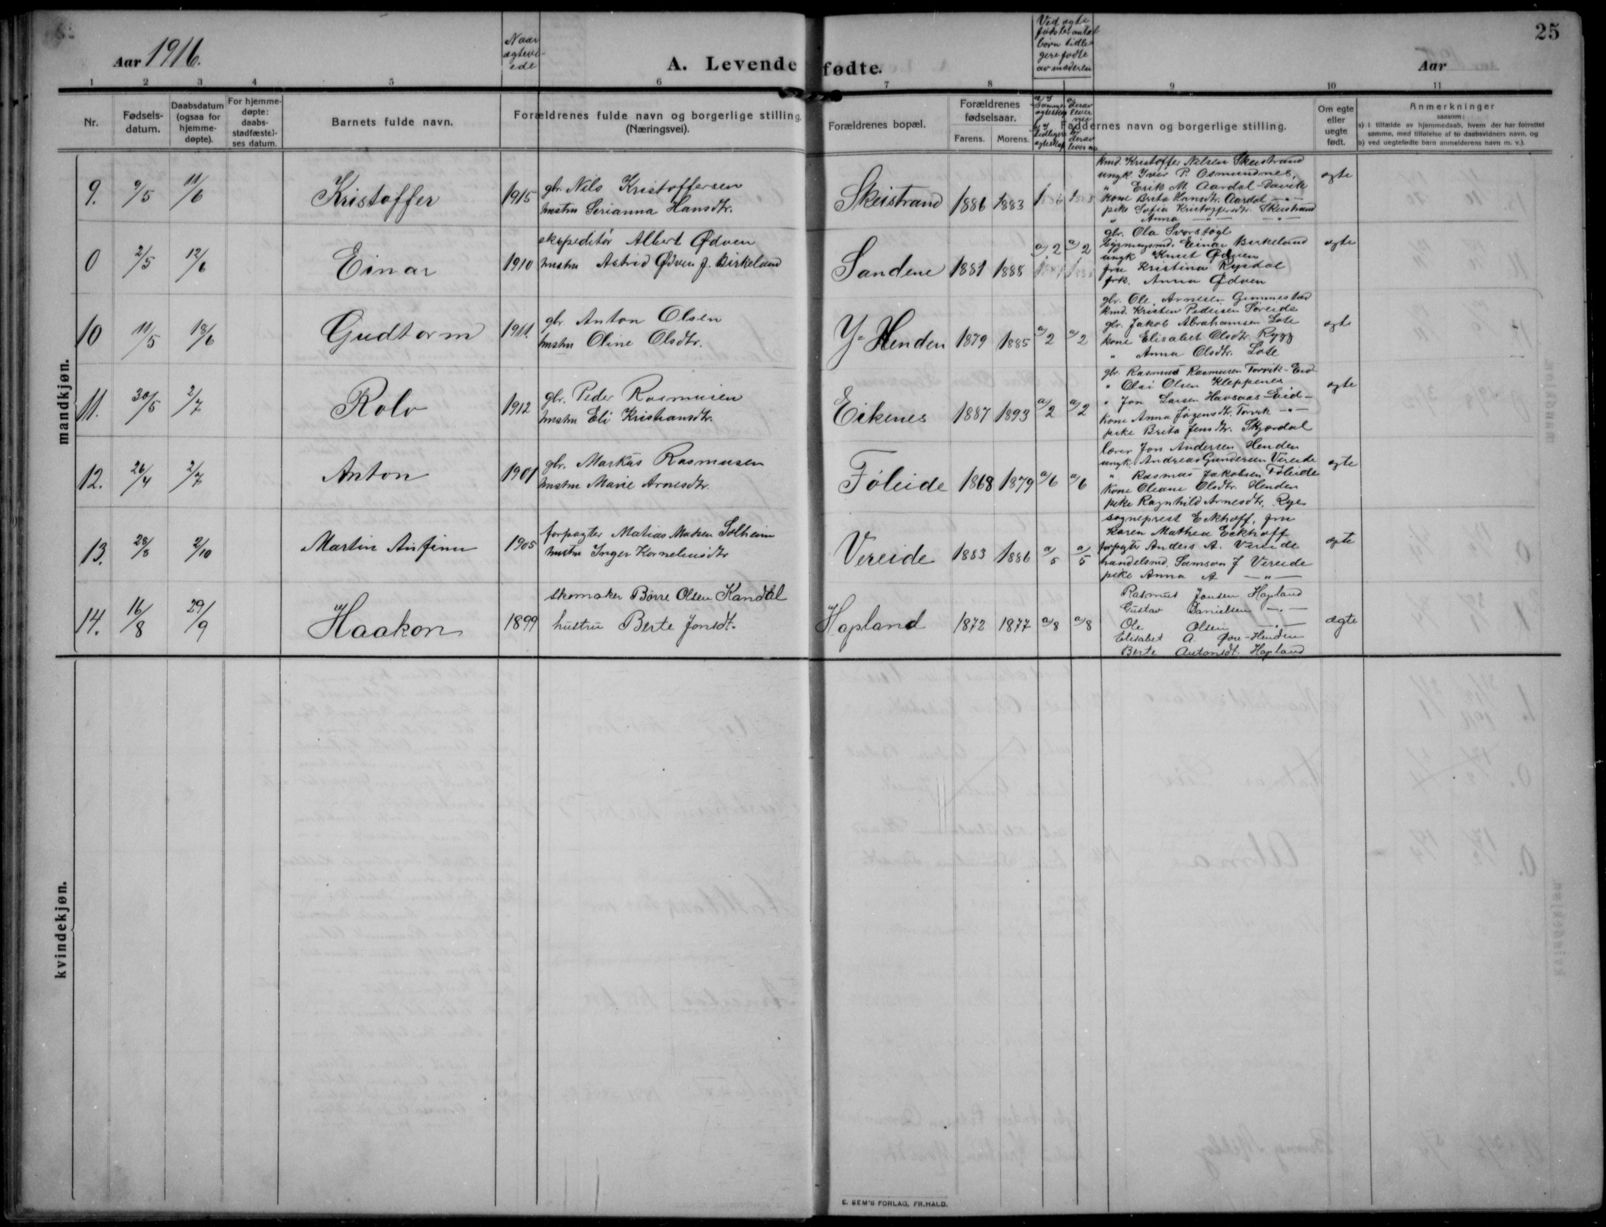 25
Aar 1916.
Naar
ægtevi-
ede
A. Levende fødte.
Ved ægte
født
barn tidli-
gere fødte
av moderen
Aar
1 2 3 4 5 6 7 8 9 10 11
Nr.
Fødsels-
datum.
Daabsdatum
(ogsaa for
hjemme-
døpte).
For hjemme-
døpte:
daabs-
stadfæstel-
ses datum.
Barnets fulde navn.
Forældrenes fulde navn og borgerlige stilling
(Næringsvei).
Forældrenes bopæl.
Forældrenes
fødselsaar.
Farens. Morens.
Faddernes navn og borgerlige stilling.
Om egte
eller
uegte
født.
Anmerkninger
saasom:
a) i tilfælde av hjemmedaab, hvem der har forrettet
samme, med tilføielse af to daabsvidners navn, og
b) ved uegtefødte barn anmelderens navn m. v.).
mandkjøn.
9. 9/5 11/6 Kristoffer 1915 gbr. Nils Kristoffersen
hustru Serianna Hansdtr.
Skeistrand 1886 1883
kmd. Kristoffer Nilsen Skeistrand
ungk. Iver P. Osmundnes,
" Erik M. Aardal - Davik
kone Brita Hansdtr. Aardal - " -
pike Sofia Kristoffersdtr. Skeistrand
" Anna - " - - " -
egte
0 2/5 12/6 Einar 1910 ekspeditør Albert Ødven
hustru Astrid Ødven f. Birkeland
Sandene 1881 1888 a/2 a/2
gbr. Ola
bygningsmd. Einar Birkeland
ungk. Knut Ødven
fru Kristina Rysdal
frk. Anna Ødven
egte
10 11/5 18/6 Gudtorm 1911. gbr. Anton Olsen
hustru Oline Olsdtr.
Y-Henden 1879 1885 a/2 a/2
gbr. Ole Arnesen Gimmestad
kmd. Kristen Pedersen Søreide
gbr. Jakob Abrahamsen Lote
kone Elisabet Olsdtr. Rygg
" Anna Olsdtr. Lote
egte
11. 30/5 2/7 Rolv 1912 gbr. Peder Rasmusen
hustru Eli Kristiansdtr.
Eikenes 1887 1893 a/2 a/2
gbr. Rasmus Rasmusen Torvik - Eid
" Olai Olsen Kleppenes
" Jon Larsen Havsaas - Eid -
kone Anna Jørgensdtr. Torvik - " -
pike Brita Jensdtr. Skjerdal
egte
12. 26/4 2/7 Anton 1901 gbr. Markus Rasmusen
hustru Marie Arnesdtr.
Føleide 1868 1879 a/6 a/6
lærer Jon Andersen Henden
ungk. Andreas Gundersen Vereide
" Rasmus Jakobsen Føleide
Kone Oleane Olsdtr. Henden
pike Ragnhild Arnesdtr. Rye
egte
13. 28/8 2/10 Martin Anfinn 1905 forpagter Matias Madsen Solheim
hustru Inger Korneliusdtr
Vereide 1883 1886 a/5 a/5
sogneprest Eckhoff, fru
Karen Mathea Eckhoff
forpagter Anders A. Vereide
handelsmd. Samson J Vereide
pike Anna A - " -
egte
14. 16/8 29/9 Haakon 1899 skomaker Børre Olsen Kandal
hustru Berte Jonsdt.
Hopland 1872 1877 a/8 a/8
Rasmus Jonsen Hopland
Gustav Danielsen - " -
Ole Olsen - " -
Elisabet A. Øvre-Henden
Berte Antonsdt. Hopland
ægte
kvindekjøn.
E. SEM'S FORLAG, FR.HALD.